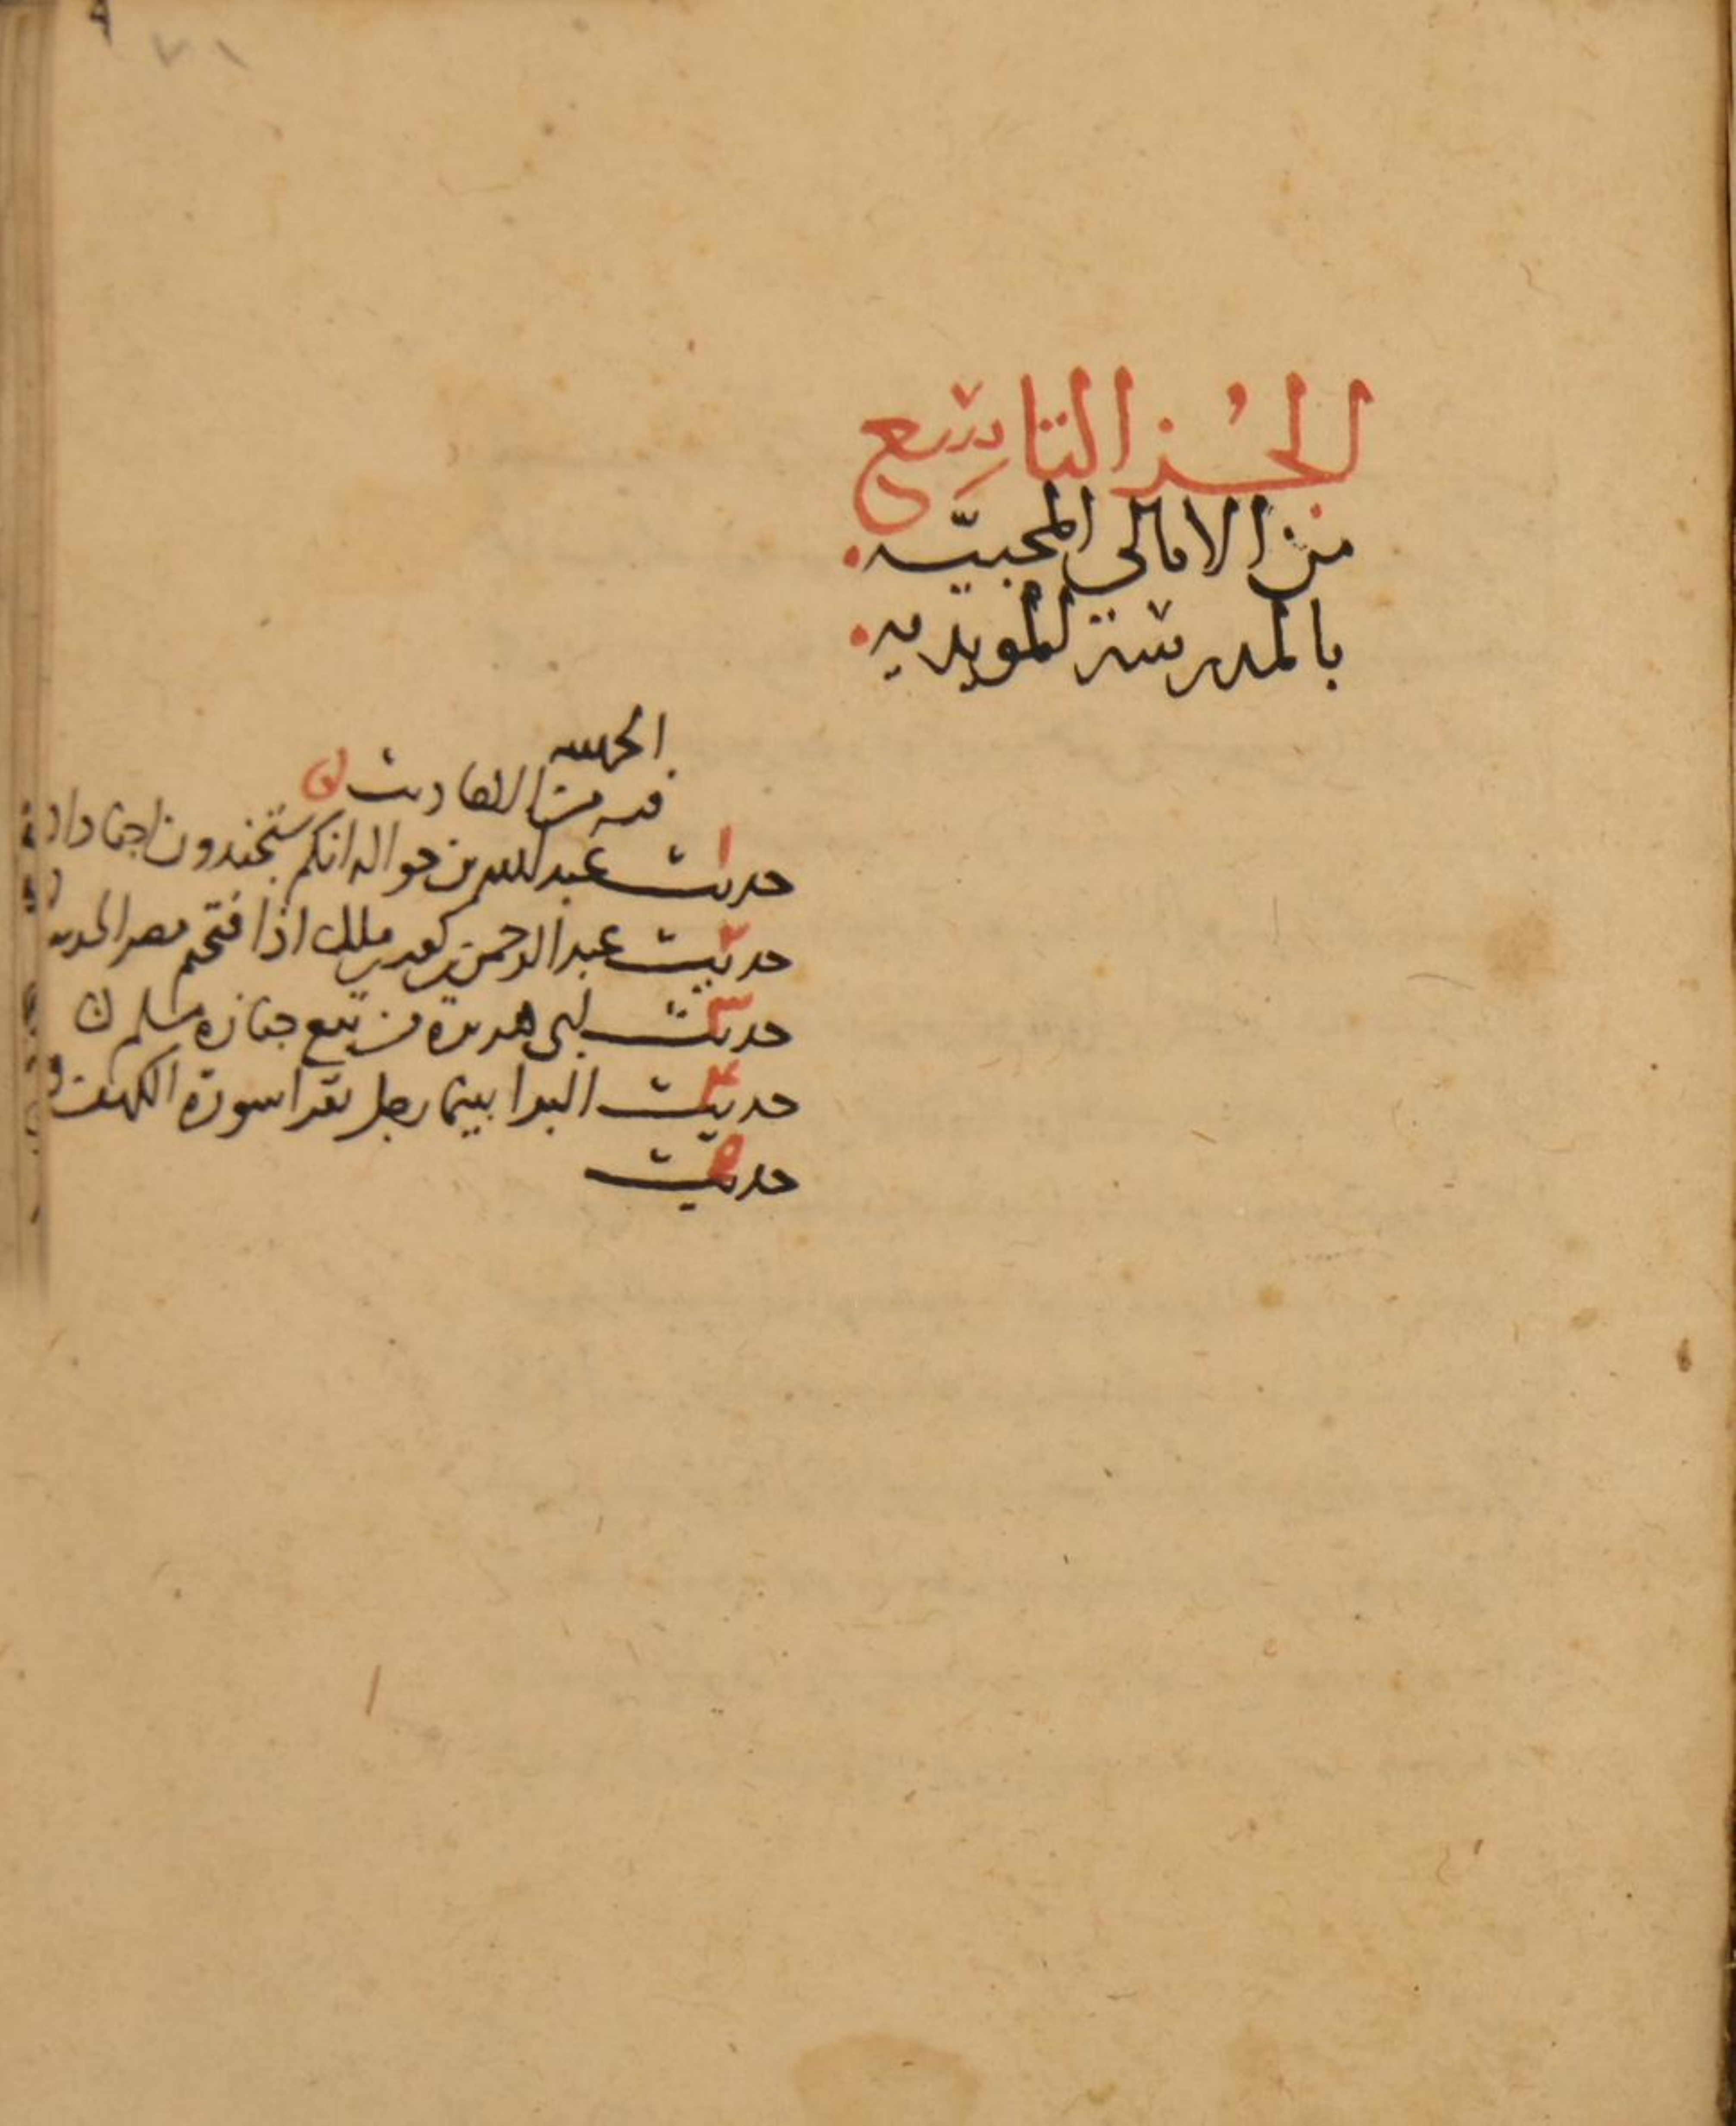 ٧١
الجزء التاسع
من الامالي المحبيّه
بالمدرسة المويديه
الحمد لله
فيه من الاحاديث
١ حديث عبدالله بن حواله انكم ستجندون اجنادا
٢ حديث عبدالرحمن بن كعب بن ملك اذا فتحتم مصر الحديث
٣ حديث ابي هريرة من تبع جنازه مسلم
٤ حديث البرا بينما رجل يقرا سورة الكهف
٥ حديث